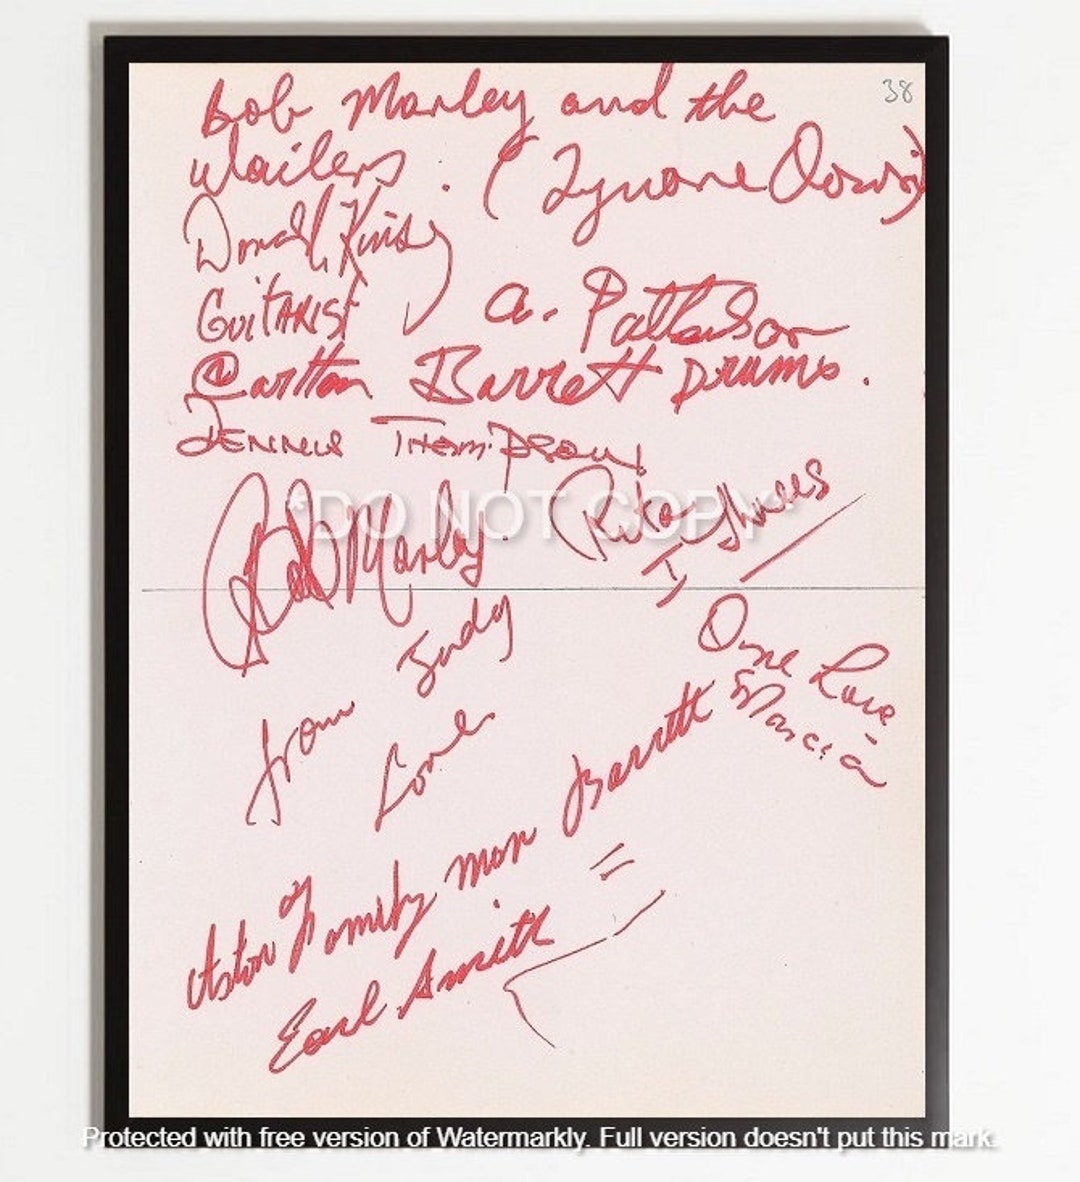 38
Bob Marley and the
Wailers. (Tyrone Downie)
Donald Kinsey
GuitaRist
a. Patterson
Carlton Barrett Drums.
DENNIS THOMPSON
*DO NOT COPY*
Bob Marley.
Rita
I Threes
from Judy
Love
One Love
- Marcia
Aston Family man Barrett
Earl Smith
Protected with free version of Watermarkly. Full version doesn't put this mark.